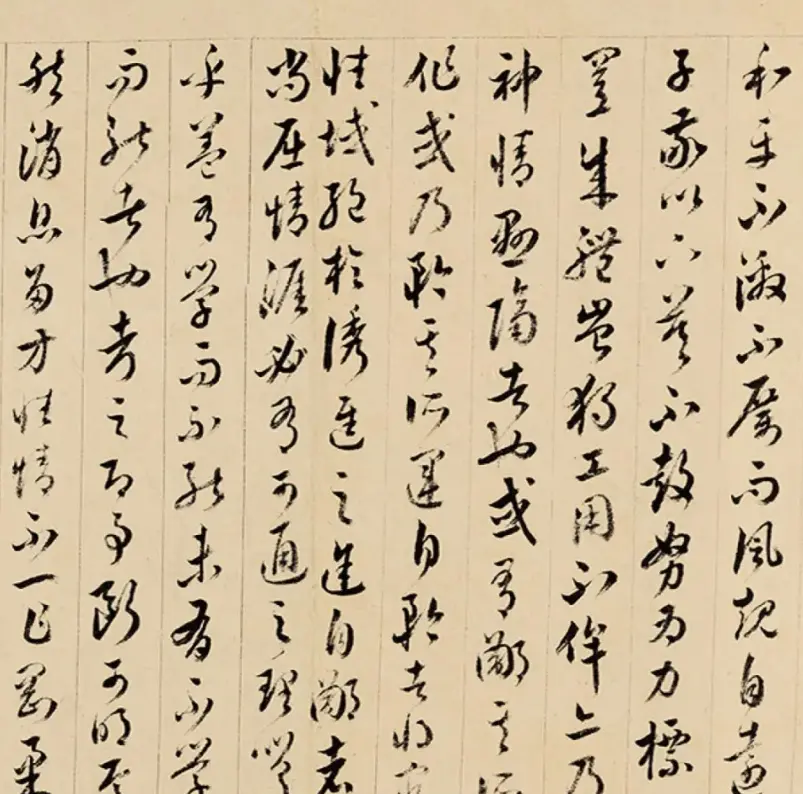 和平不激不厲而風規自遠
子敬以下莫不鼓努為力標
置成體豈獨工用不侔亦乃
神情懸隔者也或有鄙其所
作或乃矜其所運自矜者將窮
性域絕於誘進之途自鄙者
尚屈情涯必有可通之理嗟
乎蓋有學而不能未有不學
而能者也考之即事斷可明焉
然消息多方性情不一乍剛柔